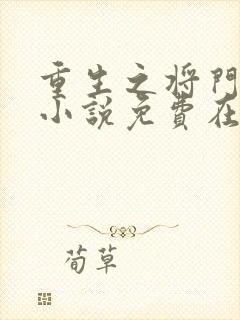 重生之将门
小説免費在
荀草